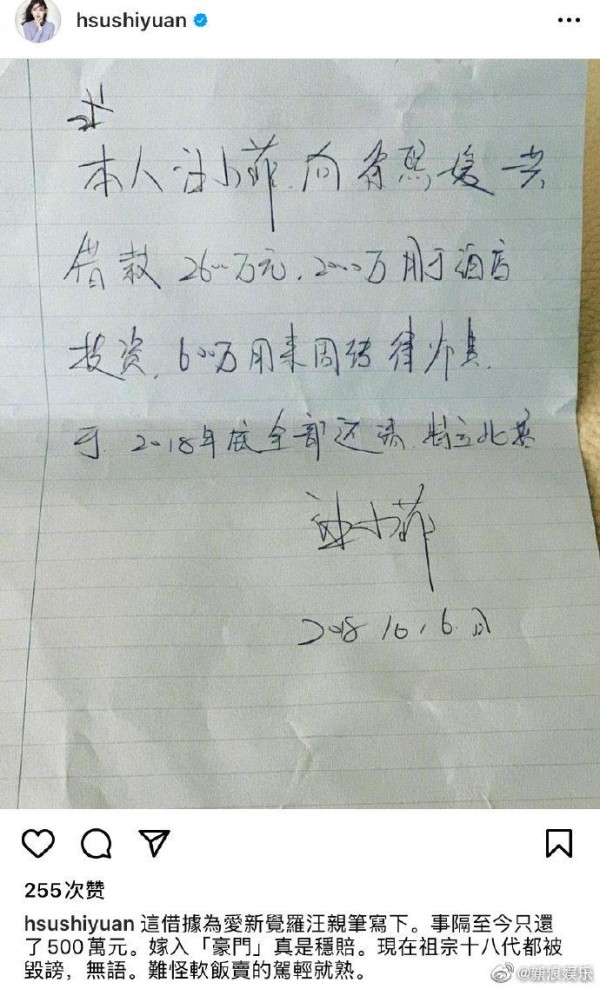 hsushiyuan
本人汪小菲,向徐熙媛共
借款2600万元,2000万用于酒店
投资,600万用来周转律师费.
于2018年底全部还清.特立此据
汪小菲
255次赞
hsushiyuan 這借據為愛新覺羅汪親筆寫下。事隔至今只還
了500萬元。嫁入「豪門」真是穩賠。現在祖宗十八代都被
毀謗,無語。難怪軟飯賣的駕輕就熟。
@新浪娱乐